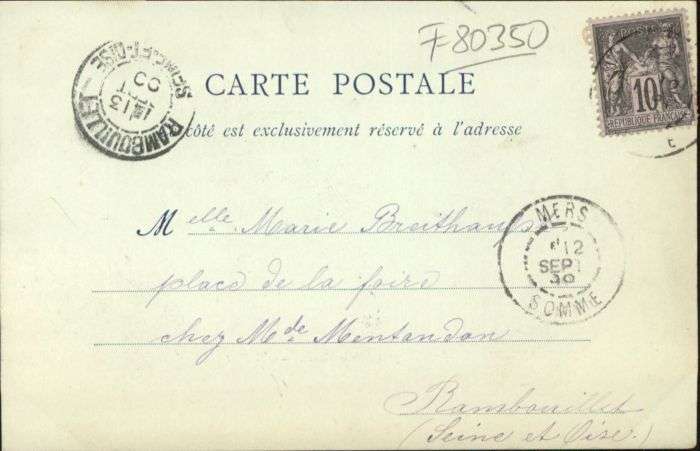 F80350
CARTE POSTALE
côté est exclusivement réservé à l'adresse
RAMBOUILLET
SEINE-ET-OISE
13
10
REPUBLIQUE FRANÇAISE
MERS
12
SEPT
99
SOMME
Melle Marie Breithaupt
place de la foire
chez Mde Mentandon
Rambouillet
(Seine et Oise)